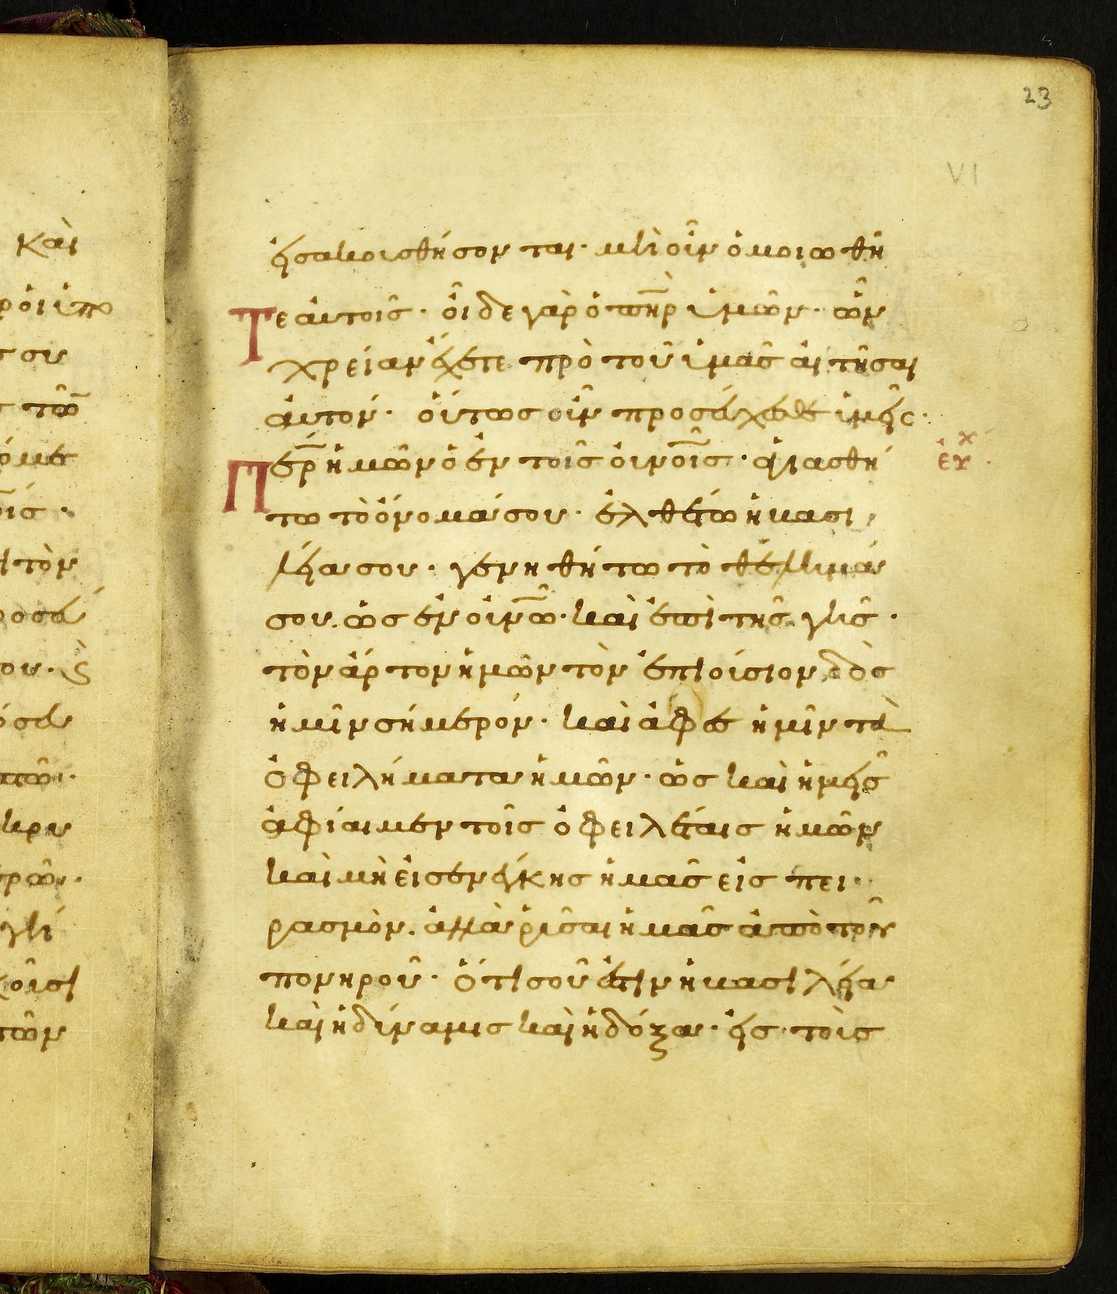 23
VI
εἰσακουσθήσονται· μὴ οὖν ὁμοιωθῆ
τε αὐτοῖς· οἶδε γὰρ ὁ πηρ ὑμῶν· ὧν
χρείαν ἔχετε πρὸ τοῦ ὑμᾶς αἰτῆσαι
αὐτόν· οὕτως οὖν προσεύχεσθε ὑμεῖς·
Περ ἡμῶν ὁ ἐν τοῖς οὐνοῖς· ἁγιασθή
τω τὸ ὄνομά σου· ἐλθέτω ἡ βασι
λεία σου· γενηθήτω τὸ θέλημά
σου. ὡς ἐν οὐνῶ· καὶ ἐπὶ τῆς γῆς·
τὸν ἄρτον ἡμῶν τὸν ἐπιούσιον δὸς
ἡμῖν σήμερον· καὶ ἄφες ἡμῖν τὰ
ὀφειλήματα ἡμῶν· ὡς καὶ ἡμεῖς
ἀφίαιμεν τοῖς ὀφειλέταις ἡμῶν
καὶ μὴ εἰσενέγκης ἡμᾶς εἰς πει
ρασμὸν. ἀλλὰ ῥῦσαι ἡμᾶς ἀπὸ τοῦ
πονηροῦ· ὅτι σοῦ ἐστιν ἡ βασιλεία
καὶ ἡ δύναμις καὶ ἡ δόξα· εἰς τοὺς